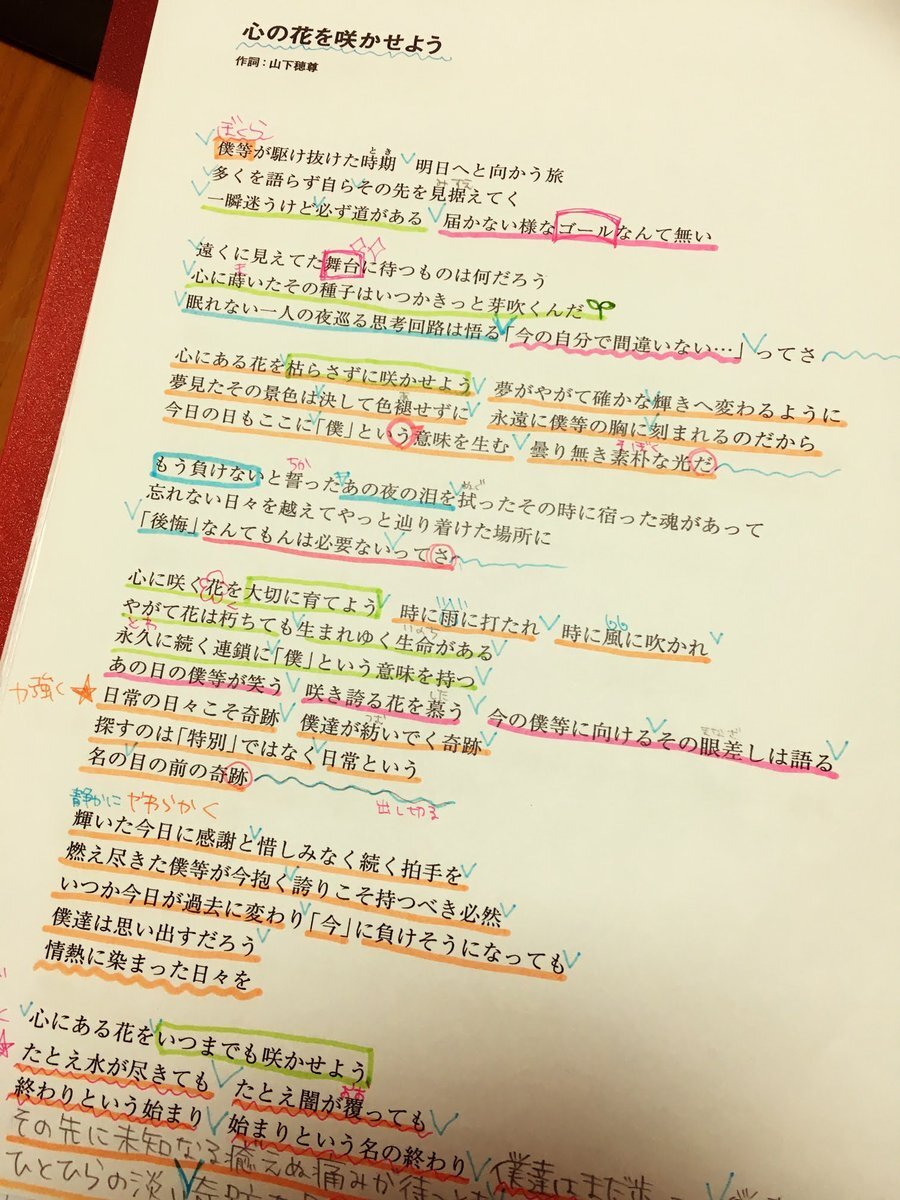 心の花を咲かせよう
作詞：山下穂尊
ぼくら
とき
僕等が駆け抜けた時期 明日へと向かう旅
みすえ
多くを語らず自らその先を見据えてく
一瞬迷うけど必ず道がある 届かない様なゴールなんて無い
遠くに見えてた舞台に待つものは何だろう
ま
心に蒔いたその種子はいつかきっと芽吹くんだ
眠れない一人の夜巡る思考回路は悟る「今の自分で間違いない…」ってさ
心にある花を枯らさずに咲かせよう 夢がやがて確かな輝きへ変わるように
あ
夢見たその景色は決して色褪せずに 永遠に僕等の胸に刻まれるのだから
そぼく
今日の日もここに「僕」という意味を生む 曇り無き素朴な光だ
ちか
ぬぐ
もう負けないと誓ったあの夜の泪を拭ったその時に宿った魂があって
忘れない日々を越えてやっと辿り着けた場所に
「後悔」なんてもんは必要ないってさ
心に咲く花を大切に育てよう 時に雨に打たれ 時に風に吹かれ
く
いのち
やがて花は朽ちても生まれゆく生命がある
とわ
永久に続く連鎖に「僕」という意味を持つ
した
まなざ
あの日の僕等が笑う 咲き誇る花を慕う 今の僕等に向けるその眼差しは語る
力強く
つむ
日常の日々こそ奇跡 僕達が紡いでく奇跡
探すのは「特別」ではなく日常という
名の目の前の奇跡
静かに やわらかく 出し切る
輝いた今日に感謝と惜しみなく続く拍手を
燃え尽きた僕等が今抱く誇りこそ持つべき必然
いつか今日が過去に変わり「今」に負けそうになっても
僕達は思い出すだろう
情熱に染まった日々を
心にある花をいつまでも咲かせよう
おお
たとえ水が尽きても たとえ闇が覆っても
終わりという始まり 始まりという名の終わり
その先に未知なる癒えぬ痛みが待っとも 僕達はまだ歩
ひとひらの淡い奇跡